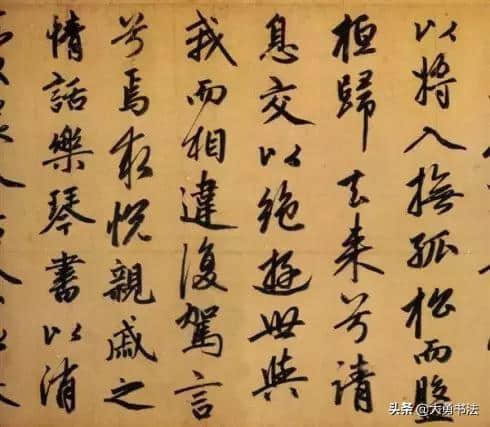 以將入撫孤松而盤
桓歸去来兮請
息交以絶遊世與
我而相違復駕言
兮焉求悅親戚之
情話樂琴書以消
头条 @大勇书法